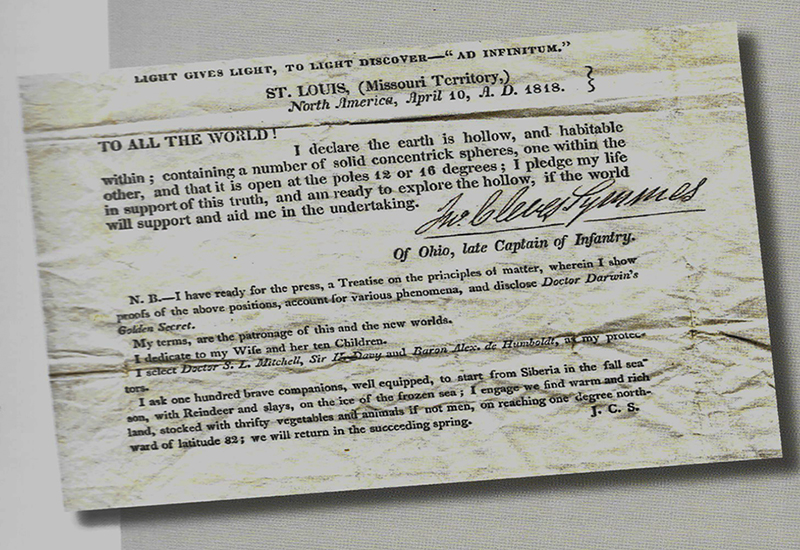 LIGHT GIVES LIGHT, TO LIGHT DISCOVER—"AD INFINITUM."
ST. LOUIS, (Missouri Territory,)
North America, April 10, A. D. 1818. }
TO ALL THE WORLD!
I declare the earth is hollow, and habitable
within; containing a number of solid concentrick spheres, one within the
other, and that it is open at the poles 12 or 16 degrees; I pledge my life
in support of this truth, and am ready to explore the hollow, if the world
will support and aid me in the undertaking.
Jno. Cleves Symmes
Of Ohio, late Captain of Infantry.
N. B.—I have ready for the press, a Treatise on the principles of matter, wherein I show
proofs of the above positions, account for various phenomena, and disclose Doctor Darwin's
Golden Secret.
My terms, are the patronage of this and the new worlds.
I dedicate to my Wife and her ten Children.
I select Doctor S. L. Mitchell, Sir H. Davy and Baron Alex. de Humboldt, as my protec-
tors.
I ask one hundred brave companions, well equipped, to start from Siberia in the fall sea-
son, with Reindeer and slays, on the ice of the frozen sea; I engage we find warm and rich
land, stocked with thrifty vegetables and animals if not men, on reaching one degree north-
ward of latitude 82; we will return in the succeeding spring.
J. C. S.